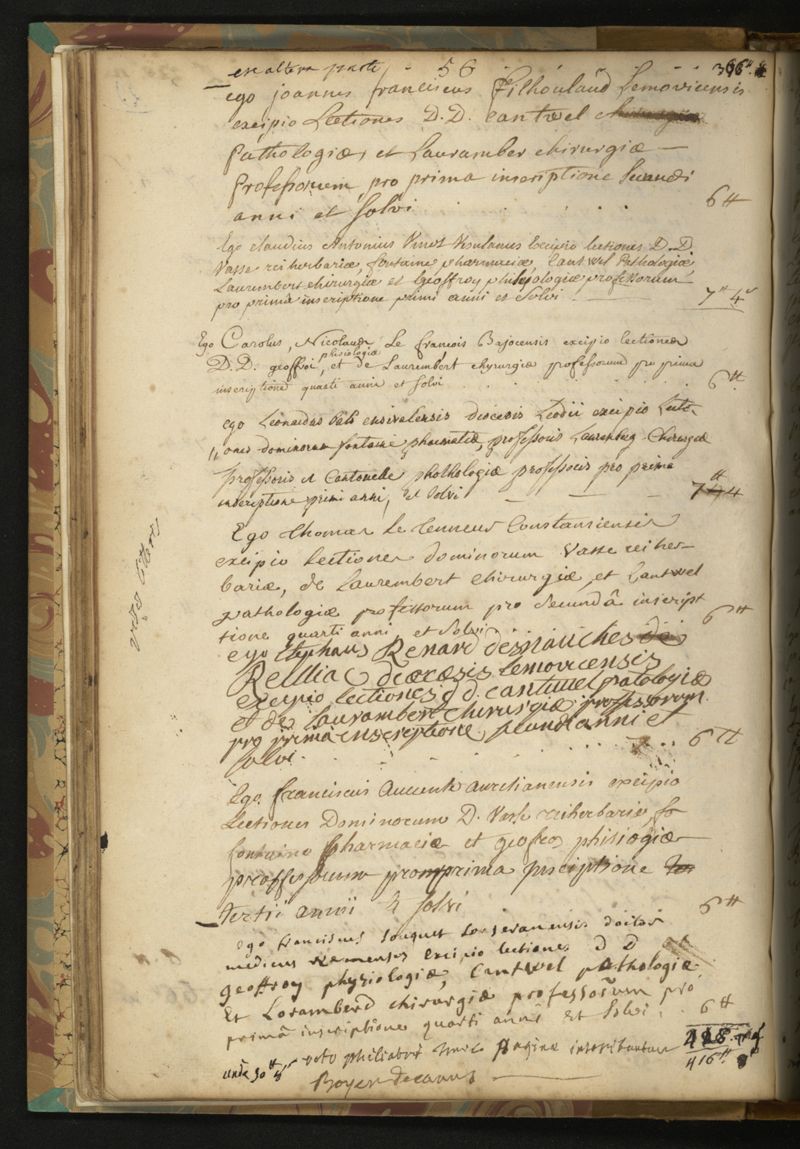 ex altera parte 56 366tt
ego joannes franciscus Lemovicensis
excipio Lectiones D.D. Cantwel
Pathologiæ, et Lauramber chirurgiæ
Professorum pro prima inscriptione secundi
anni et solvi 6tt
Ego claudius Antonius Excipio lectiones D.D.
Vasse rei herbariæ, fontaine pharmaciæ, Cantwel Pathologiæ
Laurembert chirurgiæ et Geoffroy phisiologiæ professorum
pro primâ inscriptione primi anni et solvi 7tt 4s
Ego Carolus, Nicolaus Le françois Bajocensis excipio lectiones
D.D. geoffroi phisiologiæ, et de Laurembert chyrurgiæ professorum pro prima
inscriptione quarti anni et solvi 6tt
ego Leonardus ensivalensis diocesis Leodii excipio Lecti-
ones dominorum fontaine pharmatiæ, professoris Laurenbeg Chirurgiæ
professoris et Cantouelle phathologiæ professoris pro prima
inscriptione primi anni, et solvi 7tt 4
Ego Thomas Le Tenneur Constansiensis
excipio lectiones dominorum Vasse rei her-
bariæ, de Laurembert chirurgiæ, et Cantwel
pathologiæ professorum pro secundâ inscript
tione quarti anni et solvi 6tt
ego Stephanus Renard desrauches
diœcæsis lemovicensis
excipio lectiones d d. cantwel patologiæ
et de Laurambert chirurgiæ professorum
pro prima inscriptione secundi anni et
solvi 6tt
Ego franciscus aurelianensis excipio
Lectiones Dominorum D. Vasse rei herbariæ, fo
fontaine pharmaciæ et geofroo phisiogiæ
proffessorum promprima insciptione
tertii annii & solvi 6tt
Ego franciscus souquet doctor
medicus remensis excipio lectiones D D
geoffroy physiologiæ, Cantwel pathologiæ
Et Loramberd chirurgiæ professorum pro
primâ inscriptione quarti anni et solvi. 6tt
unde 50tt 8s octo philiatri hujus paginæ inscribuntur 416tt 8s
Boyer decanus